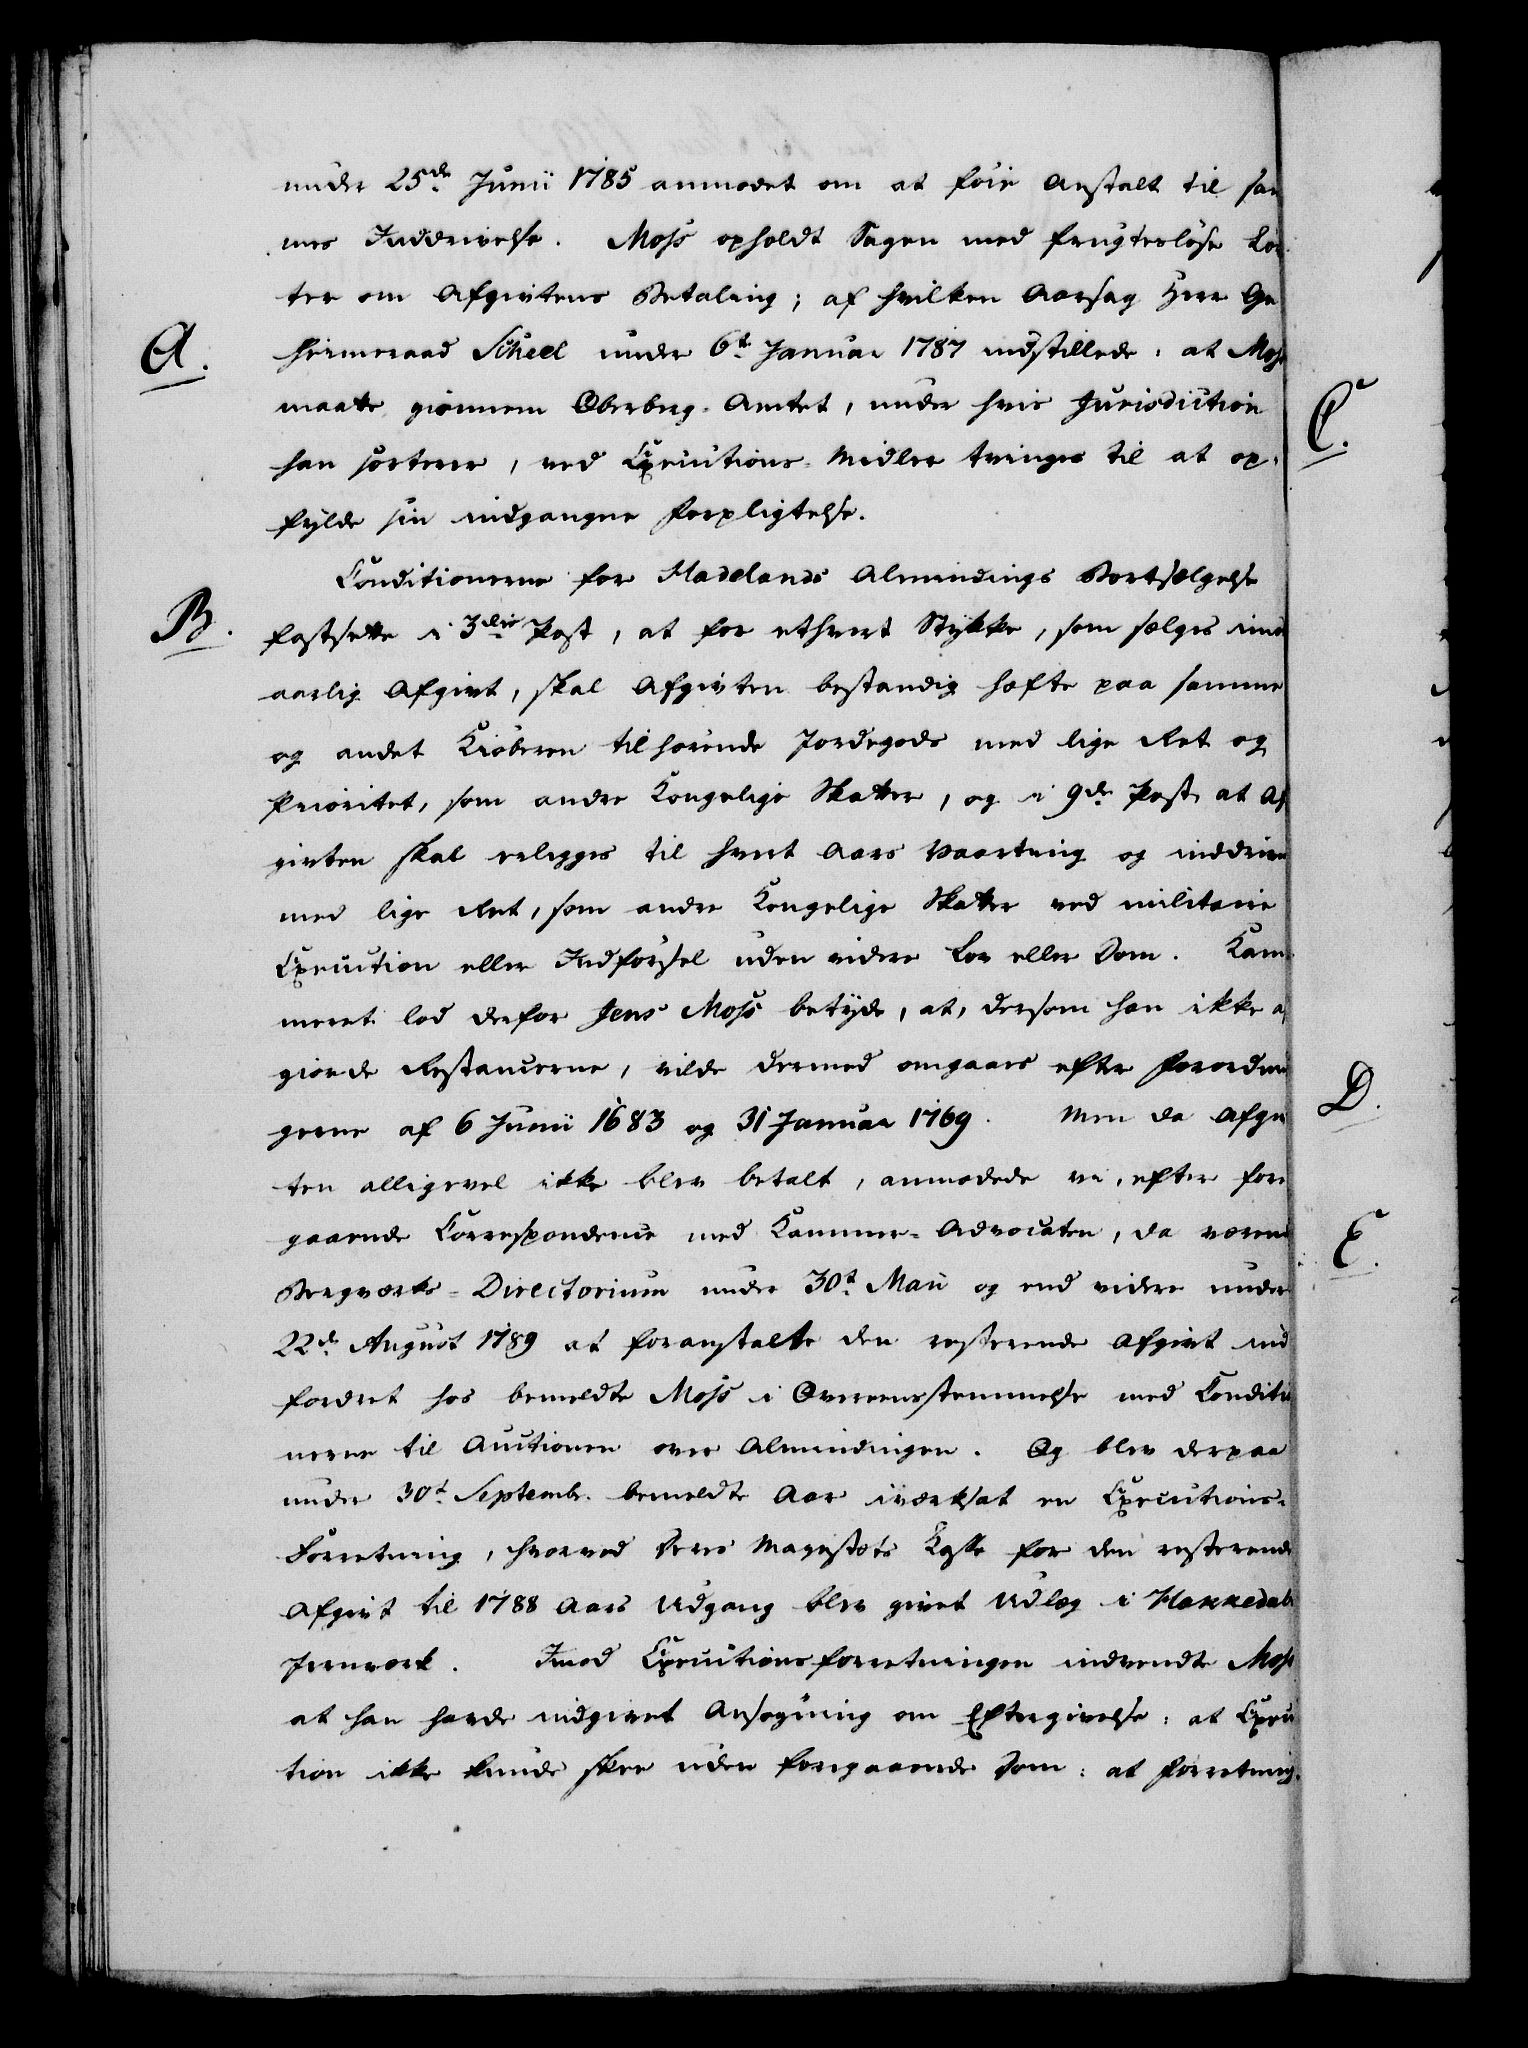 under 25de Junii 1785 anmodet om at føie Anstalt til sam
mes Inddrivelse. Moss opholdt Sagen med frugtesløse Løv
ter om Afgivtens Betaling; af hvilken Aarsag Herr Ge
A.
heimeraad Scheel under 6t Januar 1787 indstillede: at Moss
maatte giennem Oberberg-Amtet, under hvis Jurisdiction
C.
han sorterer, ved Executions-Midler tvinges til at op-
fylde sin indgangne Forpligtelse.
Conditionerne for Hadelands Almindings Bortsælgelse
B.
fastsette i 3die Post, at for ethvert Stykke, som sælges imod
aarlig Afgivt, skal Afgivten bestandig hæfte paa samme
og andet Kiøberen tilhørende Jordegods med lige Ret og
Prioritet, som andre Kongelige Skatter, og i 9de Post, at Af
givten skal erlægges til hvert Aars Vaarting og inddrives
med lige Ret, som andre Kongelige Skatter ved militaire
Execution eller Indførsel uden videre Lov eller Dom. Kam
meret lod derfor Jens Moss betyde, at, dersom han ikke af
giorde Restancerne, vilde dermed omgaaes efter Forordnin
D.
gerne af 6 Junii 1683 og 31 Januar 1769. Men da Afgiv
ten alligevel ikke blev betalt, anmodede vi, efter fore
gaaende Correspondence med Kammer-Advocaten, da værende
E.
Bergværks-Directorium under 30t Maii og end videre under
22de August 1789 at foranstalte den resterende Afgivt ind
fordret hos bemeldte Moss i Overeensstemmelse med Conditio
nerne til Auctionen over Almindingen. Og blev derpaa
under 30t Septembr. bemeldte Aar iværksat en Executions-
Forretning, hvorved Deres Majestæts Kasse for den resterende
Afgivt til 1788 Aars Udgang blev givet Udlæg i Hakkedals
Jernværk. Imod Executionsforretningen indvendte Moss
at han havde indgivet Ansøgning om Eftergivelse: at Execu
tion ikke kunde skee uden foregaaende Dom: at Forretning-